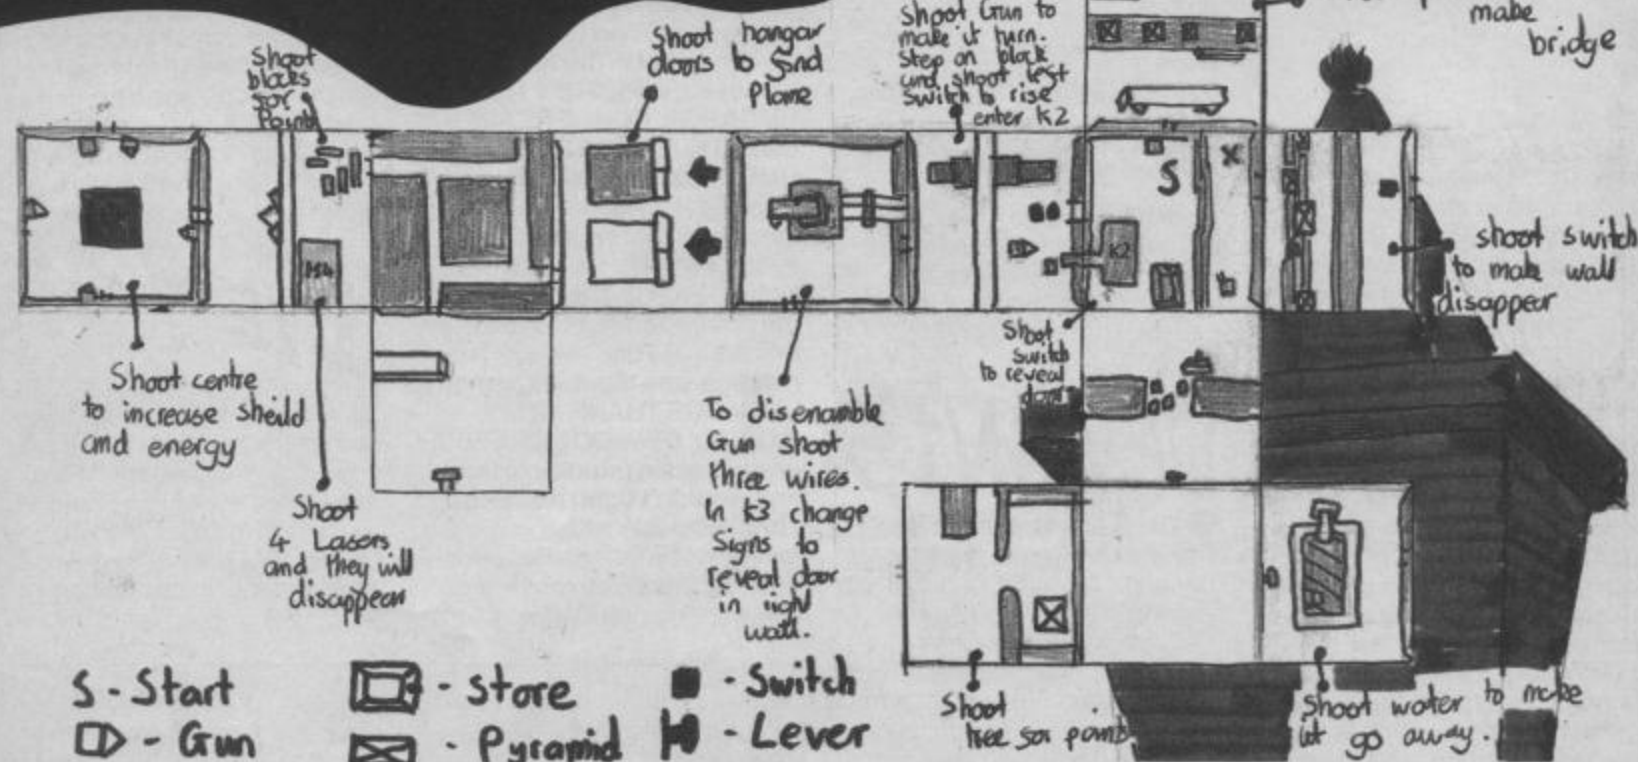 make
bridge
Shoot
blocks
for
Points
Shoot hangar
doors to find
Plane
Shoot Gun to
make it turn.
Step on block
and shoot lest
switch to rise
enter K2
S
X
M4
K2
shoot switch
to make wall
disappear
Shoot
switch
to reveal
door
Shoot centre
to increase sheild
and energy
Shoot
4 Lasors
and they will
disappear
To disenamble
Gun shoot
three wires.
In K3 change
Signs to
reveal door
in right
wall.
Shoot
tree for points
Shoot water to make
it go away.
S - Start
- Gun
- Store
- Pyramid
- Switch
- Lever